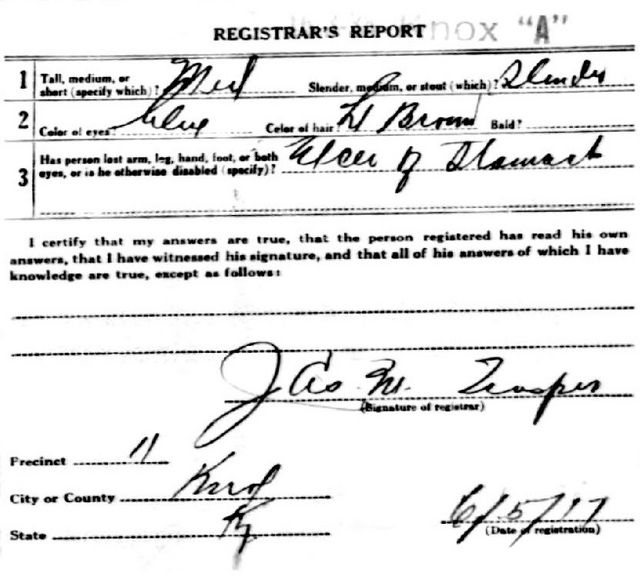 REGISTRAR'S REPORT nox "A"
1 Tall, medium, or short (specify which)? Med Slender, medium, or stout (which)? Slender
2 Color of eyes? blue Color of hair? Lt Brown Bald?
3 Has person lost arm, leg, hand, foot, or both eyes, or is he otherwise disabled (specify)? Ulcer of Stomach
I certify that my answers are true, that the person registered has read his own
answers, that I have witnessed his signature, and that all of his answers of which I have
knowledge are true, except as follows:
Jas M. Trosper
(Signature of registrar)
Precinct 11
City or County Knox
State Ky
6/5/17
(Date of registration)